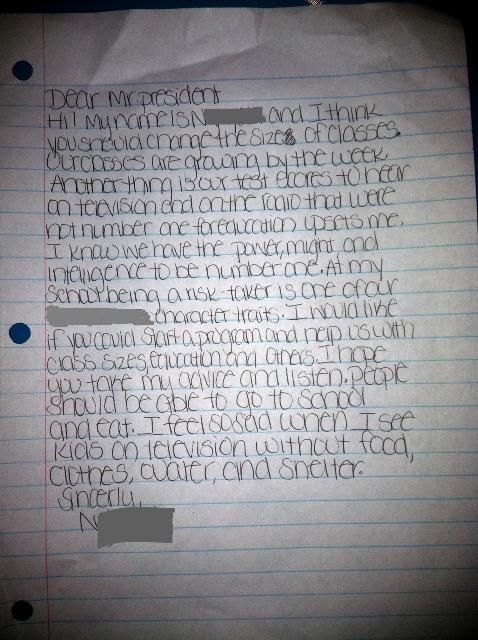 Dear Mr. president
Hi! My name is N and I think
you should change the sizes of classes.
Our classes are growing by the week.
Another thing is our test scores to hear
on television and on the radio that were
not number one for education upsets me.
I know we have the power, might and
intelligence to be number one. At my
school being a risk-taker is one of our
character traits. I would like
if you could start a program and help us with
class sizes, education, and others. I hope
you take my advice and listen. People
should be able to go to school
and eat. I feel so sad when I see
kids on television without food,
clothes, water, and shelter.
Sincerly,
N